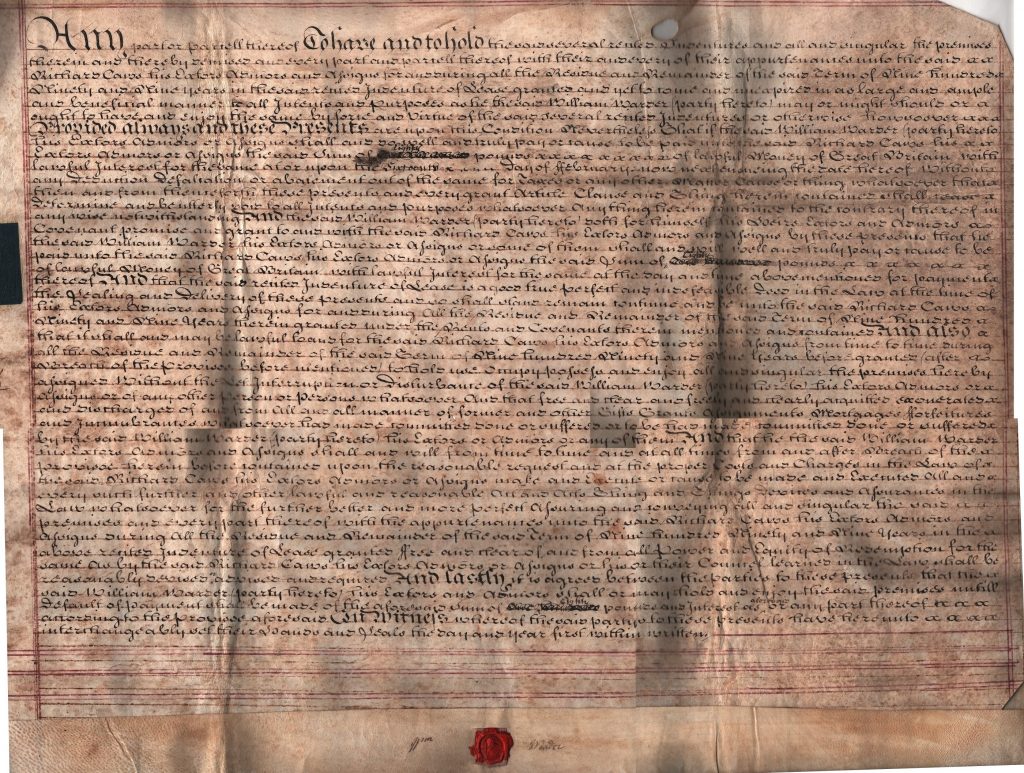 Any part or parcell thereof To have and to hold the said several recited Indentures and all and singular the premises
therein and thereby demised and every part and parcell thereof with their and every of their appurtenances unto the said
Richard Caws his Exõors Admõrs and Assigns for and during all the Residue and Remainder of the said Term of Nine hundred
Ninety and Nine years in the said recited Indenture of Lease granted and yet to come and unexpired in as large and ample
and beneficial manner to all Intents and Purposes as he the said William Warder (party hereto) may or might should or
ought to have and enjoy the same by force and Virtue of the said several recited Indentures or otherwise howsoever
Provided always and these Presents are upon this Condition Nevertheless That if the said William Warder (party hereto)
his Exõors Admõrs or Assigns shall and do well and truly pay or cause to be paid unto the said Richard Caws his
Exõors Admõrs or Assigns the said Sum of Eighty pounds of lawful Money of Great Britain with
lawful Interest for the same at or upon the Day of ffebruary now next ensuing the date hereof Without
any Deduction Defalcation or abatement out of the same for Taxes or any other Matter Cause or thing whatsoever That
then and from thenceforth these presents and every grant Article Clause and thing herein contained shall cease
determine and be utterly void to all Intents and Purposes whatsoever Any thing herein contained to the contrary thereof in
any wise notwithstanding And the said William Warder (party hereto) doth for himself his Heirs Exõors and Admõrs
Covenant promise and grant to and with the said Richard Caws his Exõors Admõrs and Assigns by these presents that he
the said William Warder his Exõors Admõrs or Assigns or some of them shall and will well and truly pay or cause to be
paid unto the said Richard Caws his Exõors Admõrs or Assigns the said Sum of Eighty pounds
of lawful Money of Great Britain with lawful Interest for the same at the day and time abovementioned for payment
thereof And that the said recited Indenture of Lease is a good true perfect and indefeasible Deed in the Law at the time of
the Sealing and delivery of these presents and so shall stand remain continue and be unto the said Richard Caws
his Exõors Admõrs and Assigns for and during All the Residue and Remainder of the said Term of Nine Hundred
Ninety and Nine Years therein granted under the Rents and Covenants therein mentioned and contained And also
that it shall and may be lawful to and for the said Richard Caws his Exõors Admõrs and Assigns from time to time during
all the Residue and Remainder of the said Term of Nine hundred Ninety and Nine Years before granted (after
Breach of the Proviso before mentioned) to hold use Occupy possess and enjoy all and singular the premises hereby
assigned Without the Let Interruption or Disturbance of the said William Warder (party hereto) his Exõors Admõrs or
Assigns or of any other Person or Persons whatsoever And that free and clear and freely and clearly acquitted exonerated
and discharged of and from All and all manner of former and other Gifts Grants Assignments Mortgages fforfeitures
and Incumbrances whatsoever had made committed done or suffered or to be had made committed done or suffered
by the said William Warder (party hereto) his Exõors or Admõrs or any of them And that he the said William Warder
his Exõors Admõrs and Assigns shall and will from time to time and at all times from and after Breach of the
provisoe herein before contained upon the reasonable request and at the proper Costs and Charges in the Law of
the said Richard Caws his Exõors Admõrs or Assigns make and Execute or cause to be made and Executed All and
every such further and other lawful and reasonable Act and Acts Thing and Things Devices and Assurances in the
Law whatsoever for the further better and more perfect Assuring and conveying all and singular the said
premises and every part thereof with the appurtenances unto the said Richard Caws his Exõors Admõrs and
Assigns during All the Residue and Remainder of the said Term of Nine hundred Ninety and Nine Years in the
above recited Indenture of Lease granted ffree and clear of and from all Power and Equity of Redemption for the
same As by the said Richard Caws his Exõors Admõrs or Assigns or his or their Council learned in the Law shall be
reasonably devised advised and required And lastly it is agreed between the parties to these presents that the
said William Warder (party hereto) his Exõors and Admõrs shall or may hold and enjoy the said premises untill
default of payment shall be made of the aforesaid Sum of Eighty pounds and Interest aforesaid or any part thereof
according to the Provisoe aforesaid In Witness whereof the said partys to these presents have hereunto
interchangeably set their Hands and Seals the day and year first within written
Wm Warder